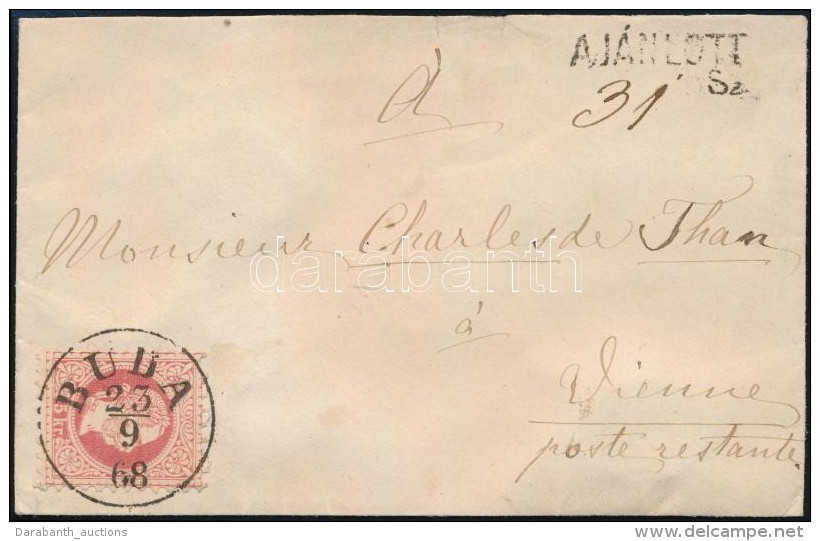 AJÁNLOTT
Sz
31
À
Monsieur Charles de Than
à
Vienne
poste restante
BUDA
23
9
68
5 kr.
darabanth
Darabanth_auctions
www.delcampe.net